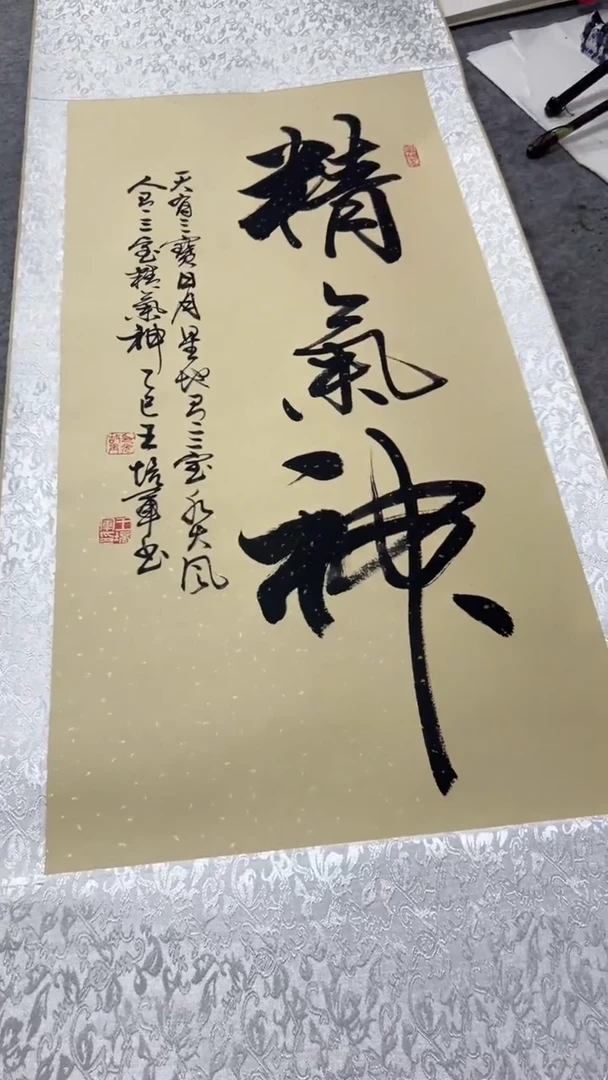 精氣神
天有三寶日月星地有三宝水火風
人有三宝精氣神乙巳王培军书